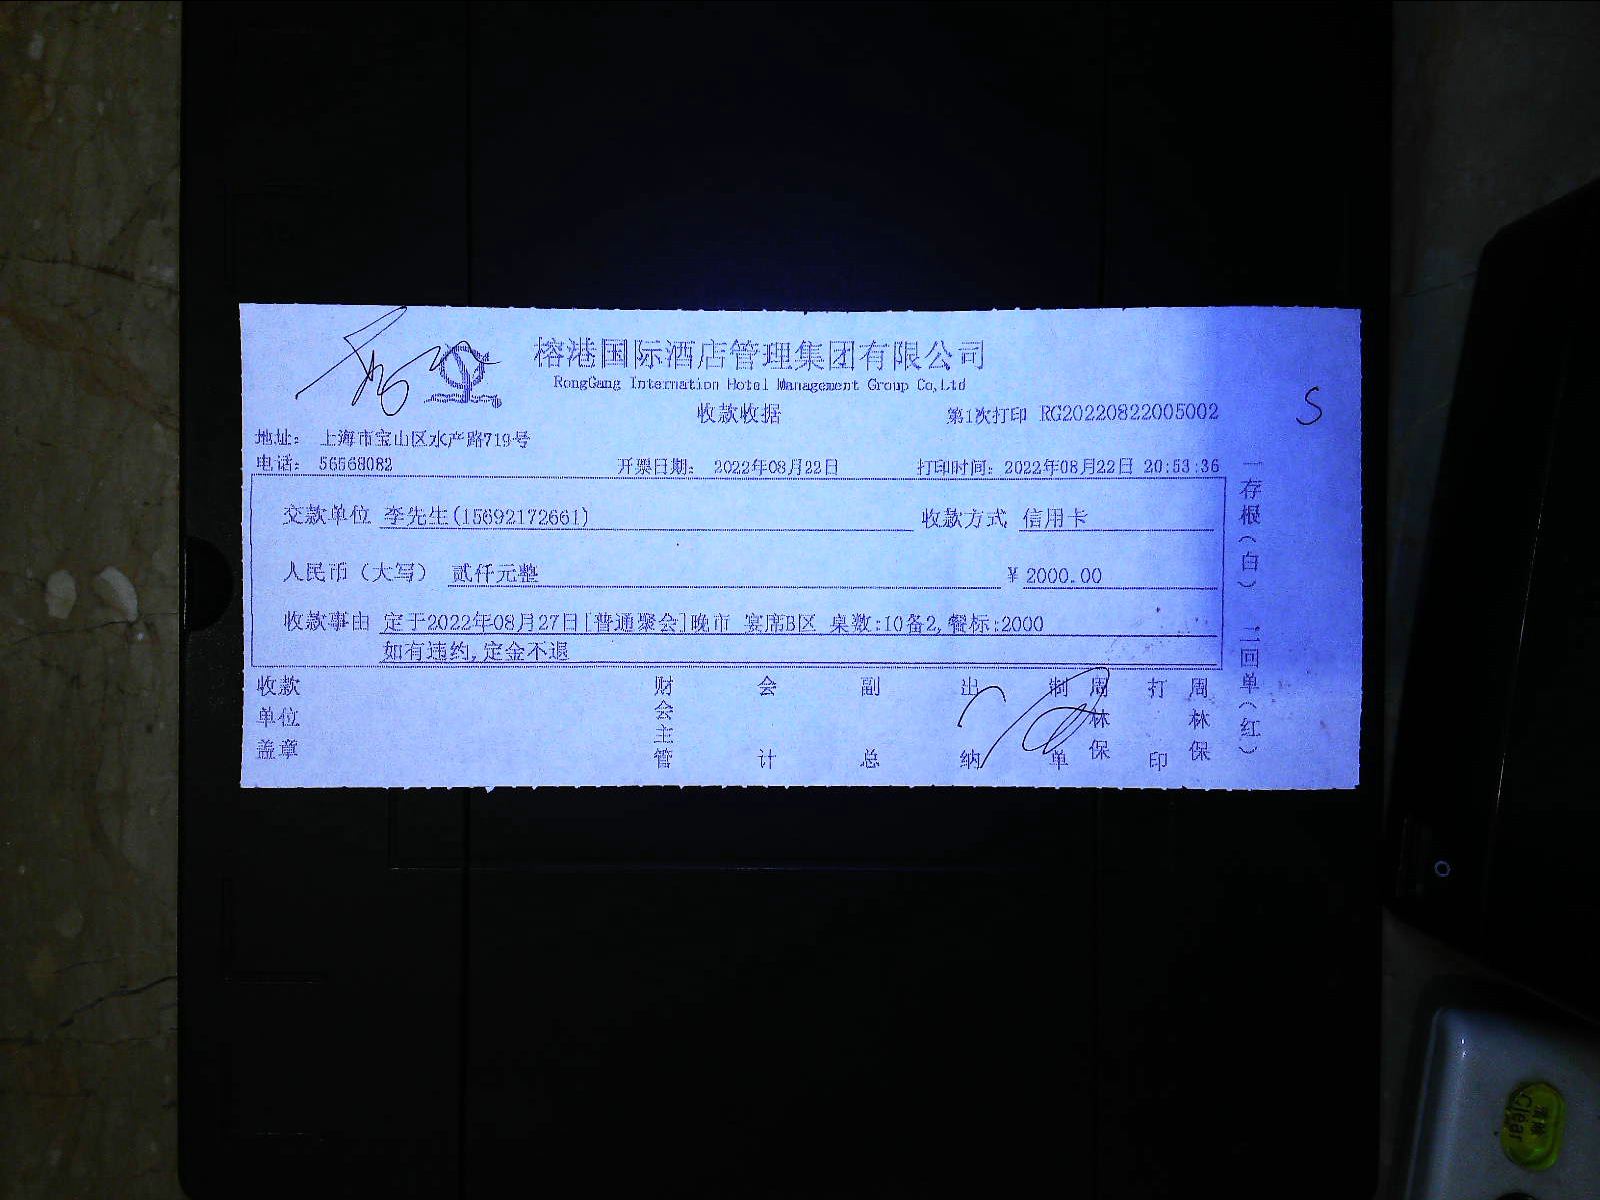 榕港国际酒店管理集团有限公司
RongGang Internation Hotel Management Group Co,Ltd
收款收据
第1次打印 RG20220822005002
S
地址: 上海市宝山区水产路719号
电话: 56568082
开票日期: 2022年08月22日
打印时间: 2022年08月22日 20:53:36
交款单位 李先生(15692172661)
收款方式 信用卡
人民币（大写） 贰仟元整
¥ 2000.00
收款事由 定于2022年08月27日[普通聚会]晚市 宴席B区 桌数:10备2,餐标:2000
如有违约,定金不退
收款单位盖章
财会主管
会计
副总
出纳
制单
周林保
打印
周林保
一存根(白) 二回单(红)
Clear